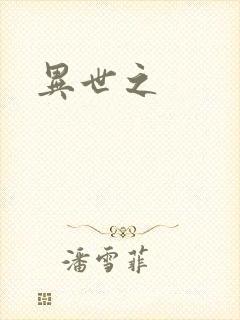 異世之
潘雪菲